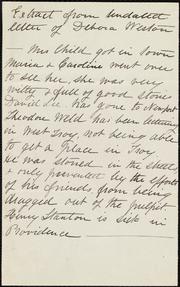 Extract from undated
letter of Debora Weston
— Mrs Child got in town
Maria & Caroline went once
to see her, she was very
witty & full of good stories
David Lee has gone to
Theodore Weld has been lecturing
in West Troy, not being able
to get a place in Troy
He was stoned in the streets
& only prevented by the efforts
of his friends from being
dragged out of the pulpit
Henry Stanton is sick in
Providence —